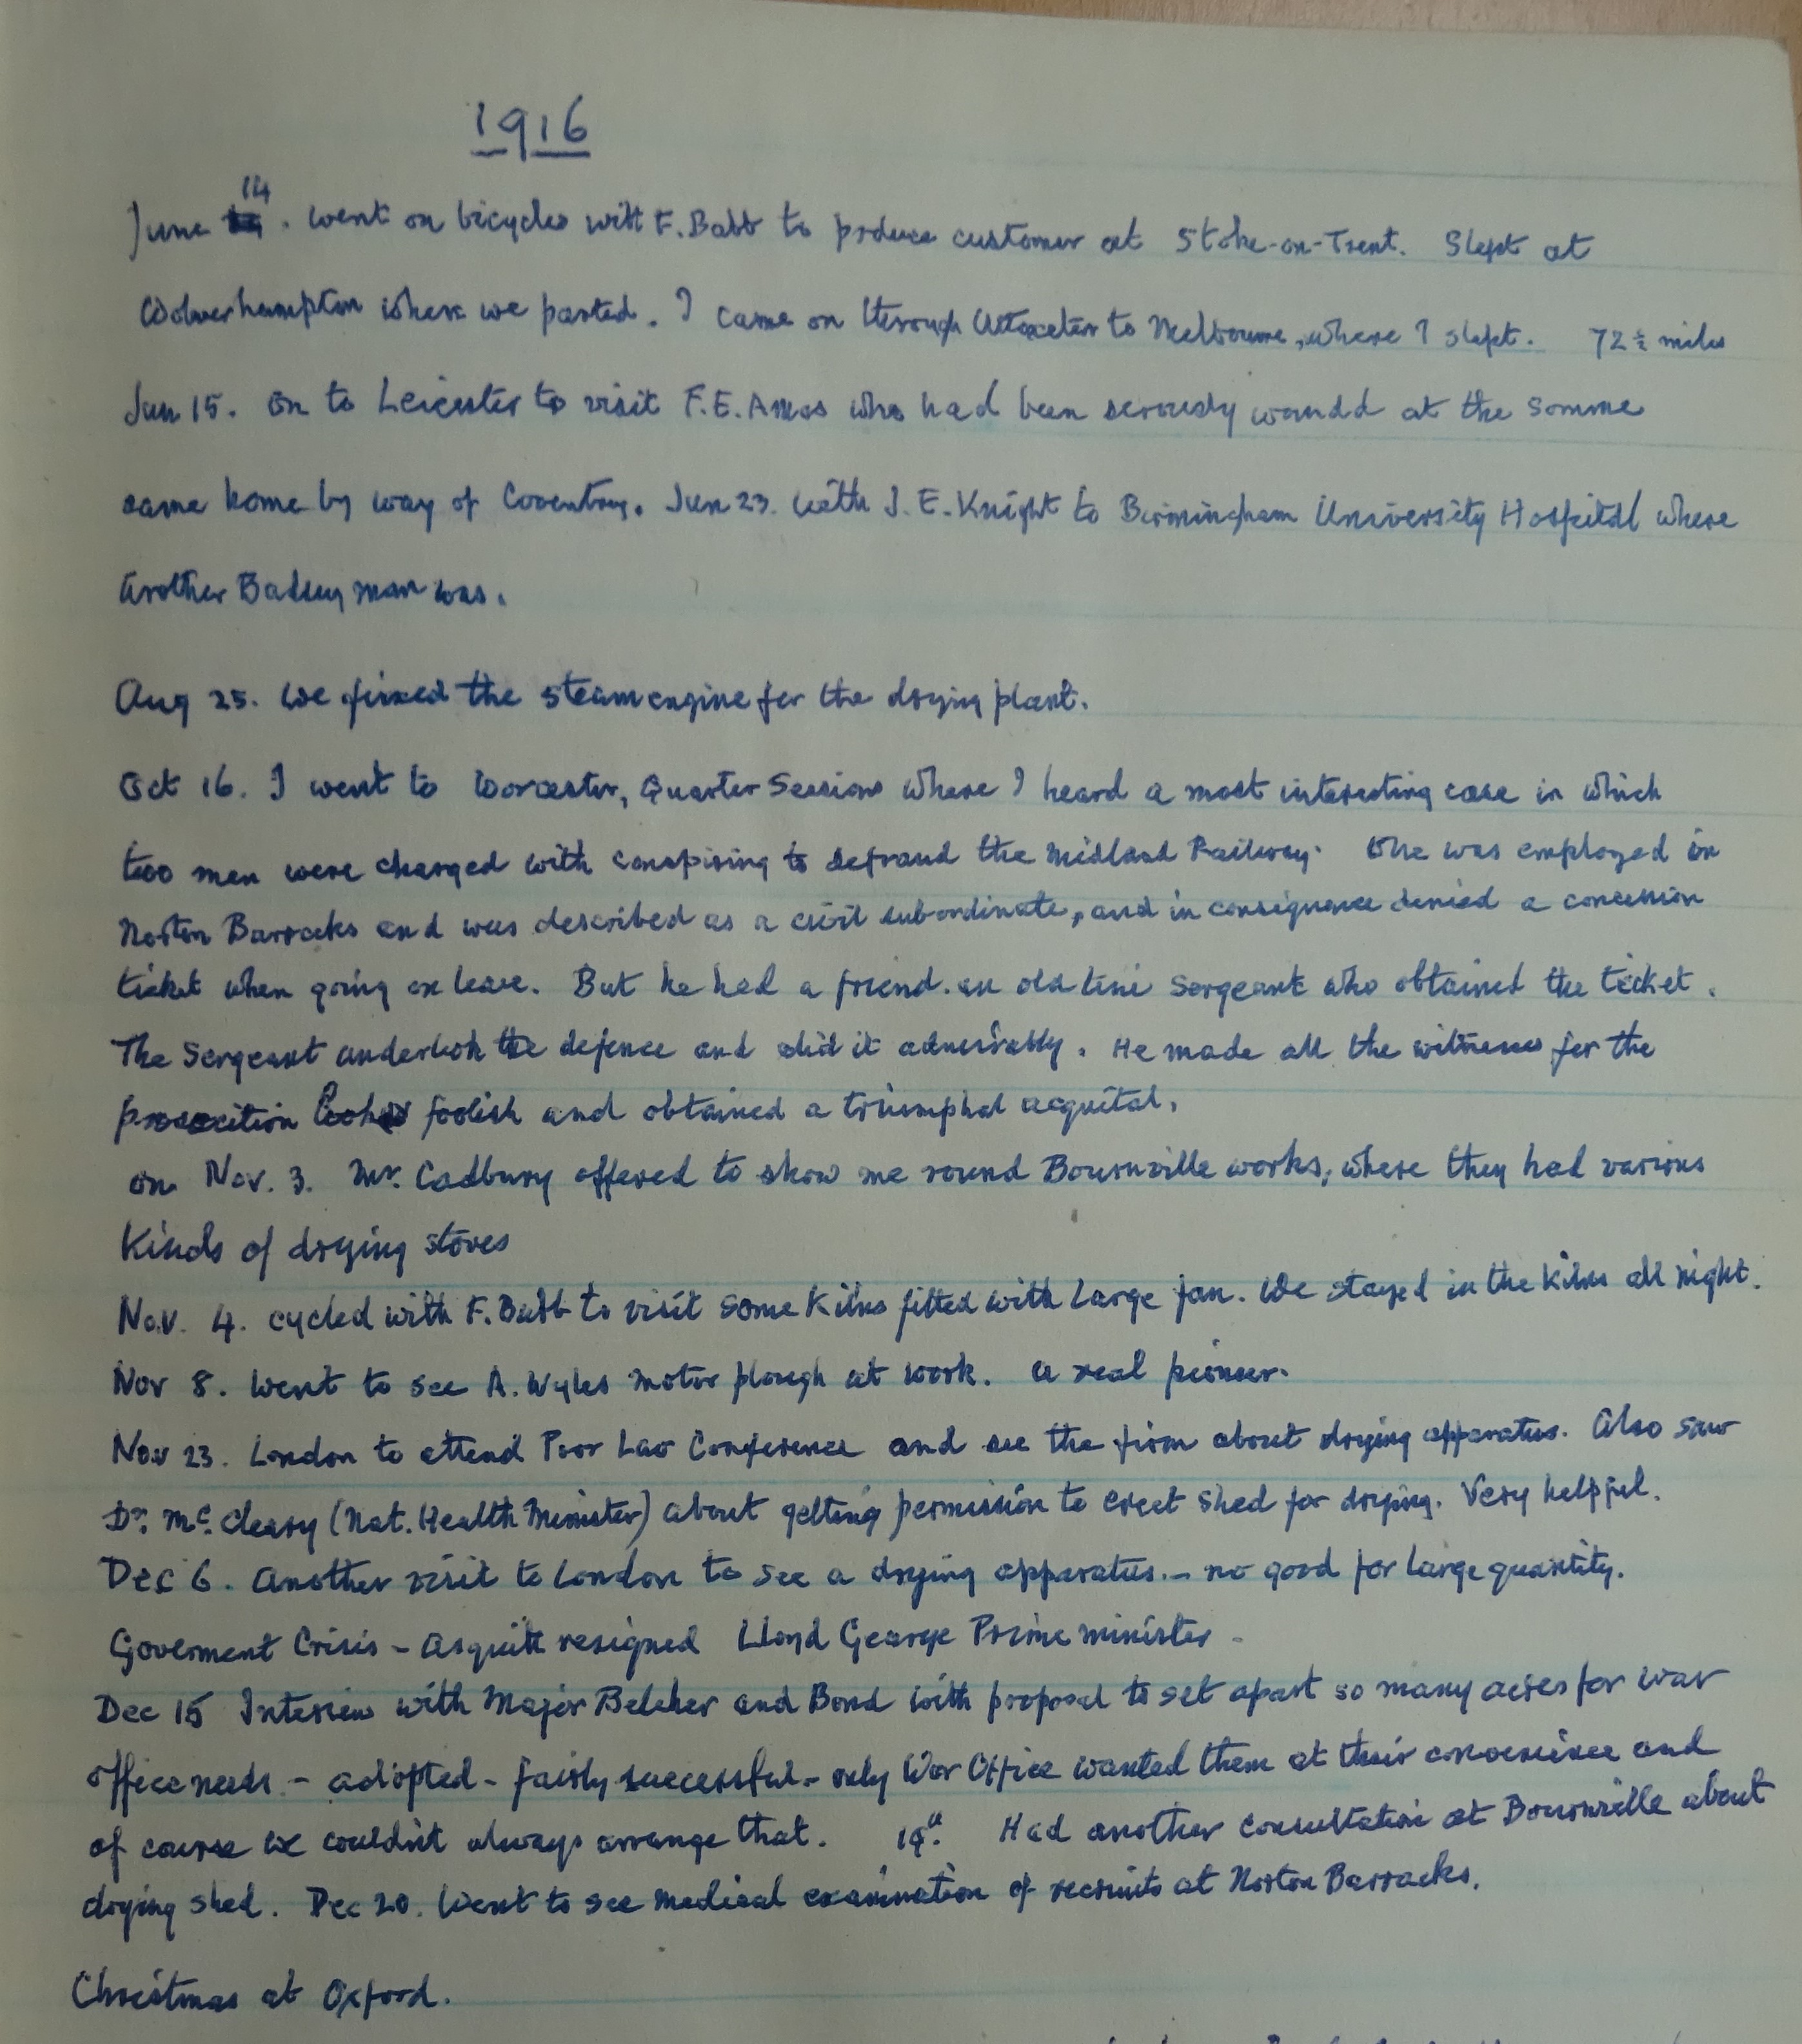 1916
June 14. went on bicycles with F. Babb to produce customer at Stoke-on-Trent. Slept at
Wolverhampton where we parted. I came on through Uttoxeter to Melbourne, where I slept. 72½ miles
Jun 15. on to Leicester to visit F.E. Amos who had been seriously woundd at the Somme
came home by way of Coventry. Jun 23. with J. E. Knight to Birmingham University Hospital where
another Badsey man was.
Aug 25. We fixed the steam engine for the drying plant.
Oct 16. I went to Worcester, Quarter Sessions where I heard a most interesting case in which
two men were charged with conspiring to defraud the Midland Railway. One was employed in
Norton Barracks and was described as a civil subordinate, and in consequence denied a concession
ticket when going on leave. But he had a friend. an old time Sergeant who obtained the ticket.
The Sergeant undertook the defence and did it admirably. He made all the witnesses for the
foolish and obtained a triumphal acquital.
on Nov. 3. Mr. Cadbury offered to show me round Bournville works, where they had various
kinds of drying stoves
Nov. 4. cycled with F. Babb to visit some Kilns fitted with large fan. We stayed in the kilns all night.
Nov 8. Went to see A. Wyles motor plough at work. a real pioneer.
Nov 23. London to attend Poor Law Conference and see the firm about drying apparatus. Also saw
Dr. Mc. Cleary (Nat. Health Minister) about getting permission to erect shed for drying. Very helpful.
Dec 6. Another visit to London to see a drying apparatus. - no good for large quantity.
Goverment Crisis - Asquith resigned Lloyd George Prime minister -
Dec 15 Interview with Major Belcher and Bond with proposal to set apart so many acres for war
office needs - adopted - fairly successful - only War Office wanted them at their convenience and
of course we couldn't always arrange that. 19th. Had another consultation at Bournville about
drying shed. Dec 20. Went to see medical examination of recruits at Norton Barracks.
Christmas at Oxford.